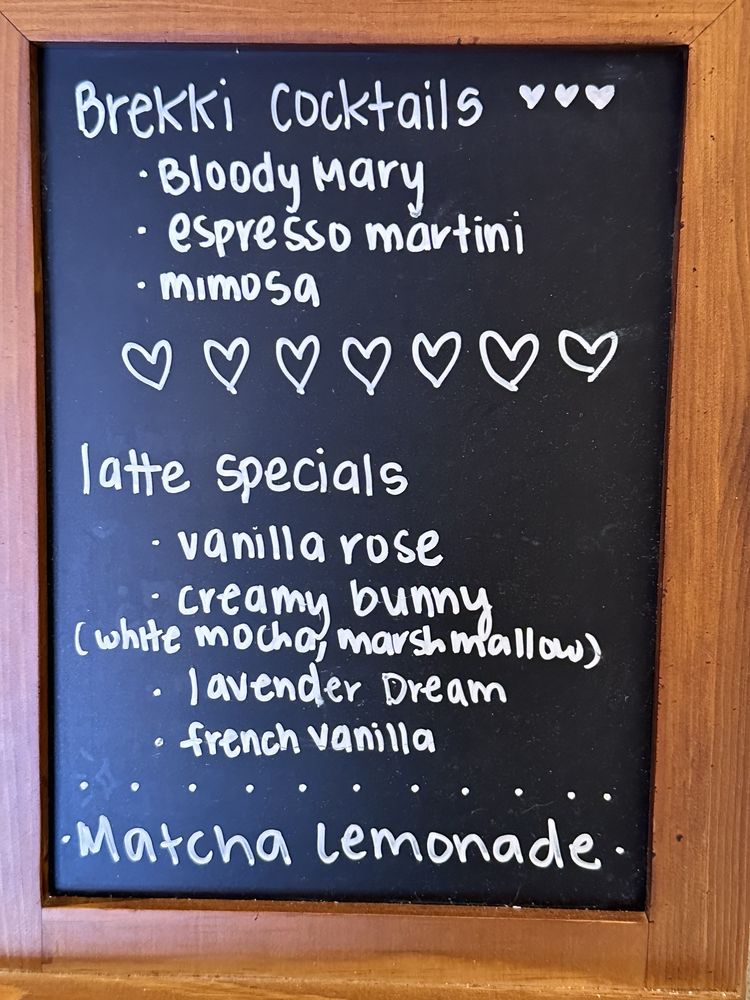 Brekki Cocktails ♥♥♥
· Bloody Mary
· espresso martini
· mimosa
latte specials
· vanilla rose
· creamy bunny
(white mocha, marshmallow)
· lavender Dream
· french vanilla
· Matcha Lemonade ·